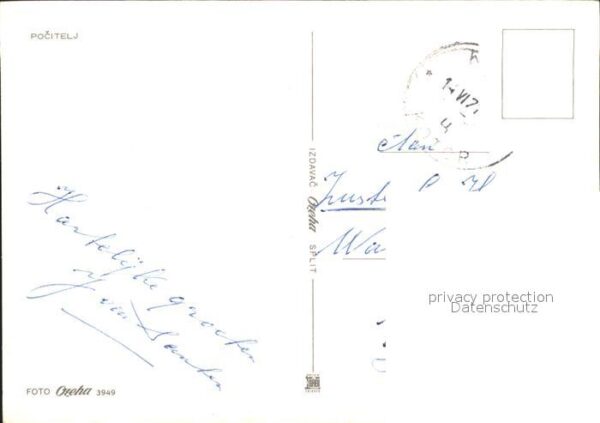 POČITELJ
Hartelijke groeten
J van Santen
FOTO Ozeha 3949
IZDAVAČ Ozeha SPLIT
14 VI 7
Aan
Zuste
Wa
privacy protection
Datenschutz